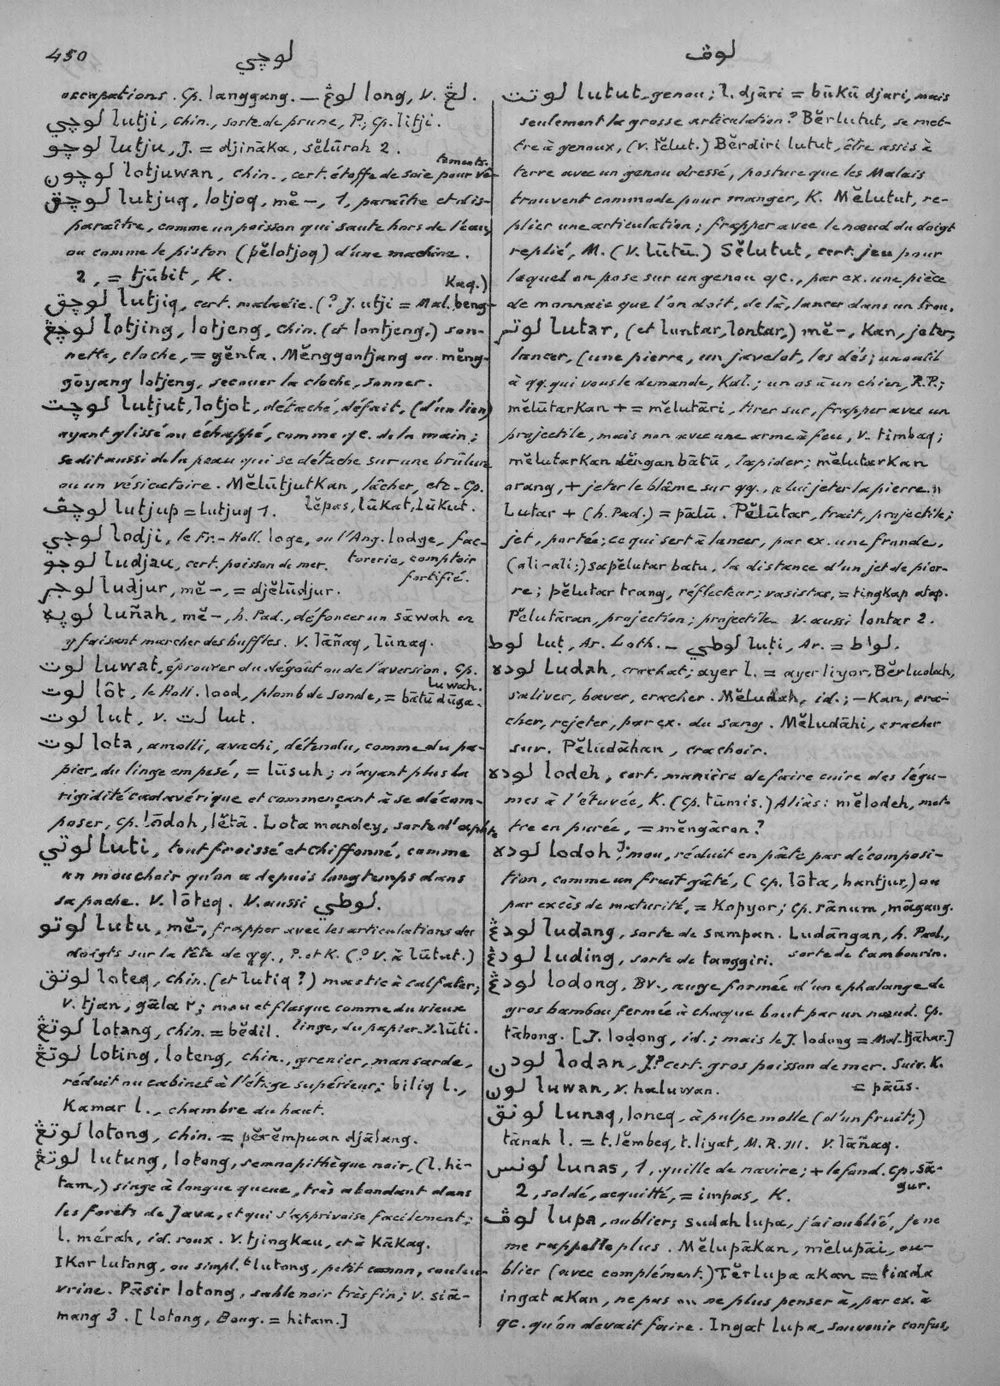 450
لوچي
لوڤ
occupations. Cp. langgang. — لوڠ long, v. لڠ.
لوچي lutji, chin., sorte de prune, P.; Cp. litji.
لوچو lutju, J. = djinàka, sĕlūroh 2.
لوچون lotjuwan, chin., cert. étoffe de soie pour vê-
tements.
لوچق lutjuq, lotjoq, mĕ—, 1, paraître et dis-
paraître, comme un poisson qui saute hors de l'eau,
ou comme le piston (pĕlotjoq) d'une machine.
2, = tjūbit, K.
لوچق lutjiq, cert. maladie. (? J. utji = Mal. beng-
Kaq.)
لوچڠ lotjing, lotjeng, chin. (et lontjeng.) son-
nette, cloche, = gĕnta. Mĕnggontjang ou mĕng-
gōyang lotjeng, secouer la cloche, sonner.
لوچت lutjut, lotjot, détaché, défait, (d'un lien)
ayant glissé ou échappé, comme qc. de la main;
se dit aussi de la peau qui se détache sur une brûlure
ou un vésicatoire. Mĕlūtjutkan, lâcher, etc. Cp.
lĕpas, lūkat, lūkut.
لوچڤ lutjup = lutjuq 1.
لوجي lodji, le Fr.-Holl. loge, ou l'Ang. lodge, fac-
torerie, comptoir
fortifié.
لوجو ludjau, cert. poisson de mer.
لوجر ludjur, mĕ—, = djĕlūdjur.
luñah, mĕ—, h. Pad., défoncer un sāwah en
y faisant marcher des buffles. V. lāñaq, lūnaq.
لوت luwat, éprouver du dégoût ou de l'aversion. Cp.
luwah.
لوت lôt, le Holl. lood, plomb de sonde, = bātū dūga.
لوت lut, v. لت lut.
لوت lota, amolli, avachi, détendu, comme du pa-
pier, du linge empesé, = lūsuh; n'ayant plus la
rigidité cadavérique et commençant à se décom-
poser, cp. lōdoh, lĕtā. Lota mandey, sorte d'aphte
لوتي Luti, tout froissé et chiffonné, comme
un mouchoir qu'on a depuis longtemps dans
sa poche. V. lōteq. V. aussi لوطي.
لوتو lutu, mĕ—, frapper avec les articulations des
doigts sur la tête de qq., P. et K. (? V. à lūtut.)
لوتق loteq, chin. (et lutiq?) mastic à calfater;
v. tjan, gāla²; mou et flasque comme du vieux
linge, du papier. v. lūti.
لوتڠ lotang, chin. = bĕdil.
لوتڠ loting, loteng, chin., grenier, mansarde,
réduit ou cabinet à l'étage supérieur; biliq l.,
Kamar l., chambre du haut.
لوتڠ lotong, chin. = pĕrĕmpuan djālang.
لوتڠ lutung, lotong, semnopithèque noir, (l. hi-
tam,) singe à longue queue, très abondant dans
les forêts de Java, et qui s'apprivoise facilement;
l. mérah, id. roux. V. tjingkau, et à Kākaq.
Ikor lutong, ou simpl.t lutong, petit canon, couleu-
vrine. Pāsir lotong, sable noir très fin; v. siā-
mang 3. [lotong, Boug. = hitam.]
لوتت lutut, genou; l. djāri = būkū djari, mais
seulement la grosse articulation? Bĕrlutut, se met-
tre à genoux, (v. tĕlut.) Bĕrdiri lutut, être assis à
terre avec un genou dressé, posture que les Malais
trouvent commode pour manger, K. Mĕlutut, re-
plier une articulation; frapper avec le nœud du doigt
replié, M. (V. lūtū.) Sĕlutut, cert. jeu pour
lequel on pose sur un genou qc., par ex. une pièce
de monnaie que l'on doit, de là, lancer dans un trou.
لوتر lutar, (et luntar, lontar,) mĕ—, kan, jeter,
lancer, (une pierre, un javelot, les dés; un outil
à qq. qui vous le demande, Kal.; un os à un chien, R.P.;
mĕlūtarkan + = mĕlutāri, tirer sur, frapper avec un
projectile, mais non avec une arme à feu, v. timbaq;
mĕlutarkan dĕngan bātū, lapider; mĕlutarkan
orang, + jeter le blâme sur qq., "lui jeter la pierre."
Lutar + (h. Pad.) = pālū. Pĕlūtar, trait, projectile;
jet, portée; ce qui sert à lancer, par ex. une fronde,
(ali-ali;) sapĕlutar batu, la distance d'un jet de pier-
re; pĕlutar trang, réflecteur; vasistas, = tingkap atap.
Pĕlutāran, projection; projectile. V. aussi lontar 2.
لوط luṭ, Ar. Loth. — لوطي luṭi, Ar. = لواط.
لوده ludah, crachat; ayer l. = ayer liyor. Bĕrludah,
saliver, baver, cracher. Mĕludah, id.; —Kan, cra-
cher, rejeter, par ex. du sang. Mĕludāhi, cracher
sur. Pĕludāhan, crachoir.
لوده lodeh, cert. manière de faire cuire des légu-
mes à l'étuvée, K. (Cp. tūmis.) Aliàs: mĕlodeh, met-
tre en purée, = mĕngāron?
لوده lodoh, J. mou, réduit en pâte par décomposi-
tion, comme un fruit gâté, (Cp. lōta, hantjur,) ou
par excès de maturité, = Kopyor; Cp. rānum, māgang.
لودڠ ludang, sorte de sampan. Ludāngan, h. Pad.,
sorte de tambourin.
لودڠ luding, sorte de tanggiri.
لودڠ lodong, Bv., auge formée d'une phalange de
gros bambou fermée à chaque bout par un nœud. Cp.
tābong. [J. loḍong, id.; mais le J. lodong = Mal. tjāhar.]
لودن lodan, J.? cert. gros poisson de mer. Suiv. K.
= pāūs.
لون luwan, v. haluwan.
لونق lunaq, loneq, à pulpe molle (d'un fruit;)
tānah l. = t. lĕmbeq, t. liyat, M.R.M. V. lāñaq.
لونس lunas, 1, quille de navire; + le fond. Cp. sā-
gur.
2, soldé, acquitté, = impas, K.
لوڤ lupa, oublier; sudah lupa, j'ai oublié, je ne
me rappelle plus. Mĕlupākan, mĕlupāi, ou-
blier (avec complément.) Tĕrlupa akan = tiada
ingat akan, ne pas ou ne plus penser à, par ex. à
qc. qu'on devait faire. Ingat lupa, souvenir confus,